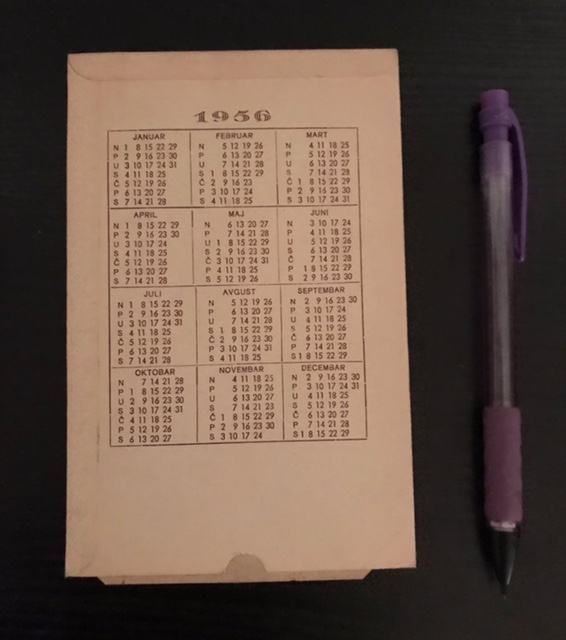 1956
JANUAR
N 1 8 15 22 29
P 2 9 16 23 30
U 3 10 17 24 31
S 4 11 18 25
Č 5 12 19 26
P 6 13 20 27
S 7 14 21 28
FEBRUAR
N 5 12 19 26
P 6 13 20 27
U 7 14 21 28
S 1 8 15 22 29
Č 2 9 16 23
P 3 10 17 24
S 4 11 18 25
MART
N 4 11 18 25
P 5 12 19 26
U 6 13 20 27
S 7 14 21 28
Č 1 8 15 22 29
P 2 9 16 23 30
S 3 10 17 24 31
APRIL
N 1 8 15 22 29
P 2 9 16 23 30
U 3 10 17 24
S 4 11 18 25
Č 5 12 19 26
P 6 13 20 27
S 7 14 21 28
MAJ
N 6 13 20 27
P 7 14 21 28
U 1 8 15 22 29
S 2 9 16 23 30
Č 3 10 17 24 31
P 4 11 18 25
S 5 12 19 26
JUNI
N 3 10 17 24
P 4 11 18 25
U 5 12 19 26
S 6 13 20 27
Č 7 14 21 28
P 1 8 15 22 29
S 2 9 16 23 30
JULI
N 1 8 15 22 29
P 2 9 16 23 30
U 3 10 17 24 31
S 4 11 18 25
Č 5 12 19 26
P 6 13 20 27
S 7 14 21 28
AVGUST
N 5 12 19 26
P 6 13 20 27
U 7 14 21 28
S 1 8 15 22 29
Č 2 9 16 23 30
P 3 10 17 24 31
S 4 11 18 25
SEPTEMBAR
N 2 9 16 23 30
P 3 10 17 24
U 4 11 18 25
S 5 12 19 26
Č 6 13 20 27
P 7 14 21 28
S 1 8 15 22 29
OKTOBAR
N 7 14 21 28
P 1 8 15 22 29
U 2 9 16 23 30
S 3 10 17 24 31
Č 4 11 18 25
P 5 12 19 26
S 6 13 20 27
NOVEMBAR
N 4 11 18 25
P 5 12 19 26
U 6 13 20 27
S 7 14 21 23
Č 1 8 15 22 29
P 2 9 16 23 30
S 3 10 17 24
DECEMBAR
N 2 9 16 23 30
P 3 10 17 24 31
U 4 11 18 25
S 5 12 19 26
Č 6 13 20 27
P 7 14 21 28
S 1 8 15 22 29